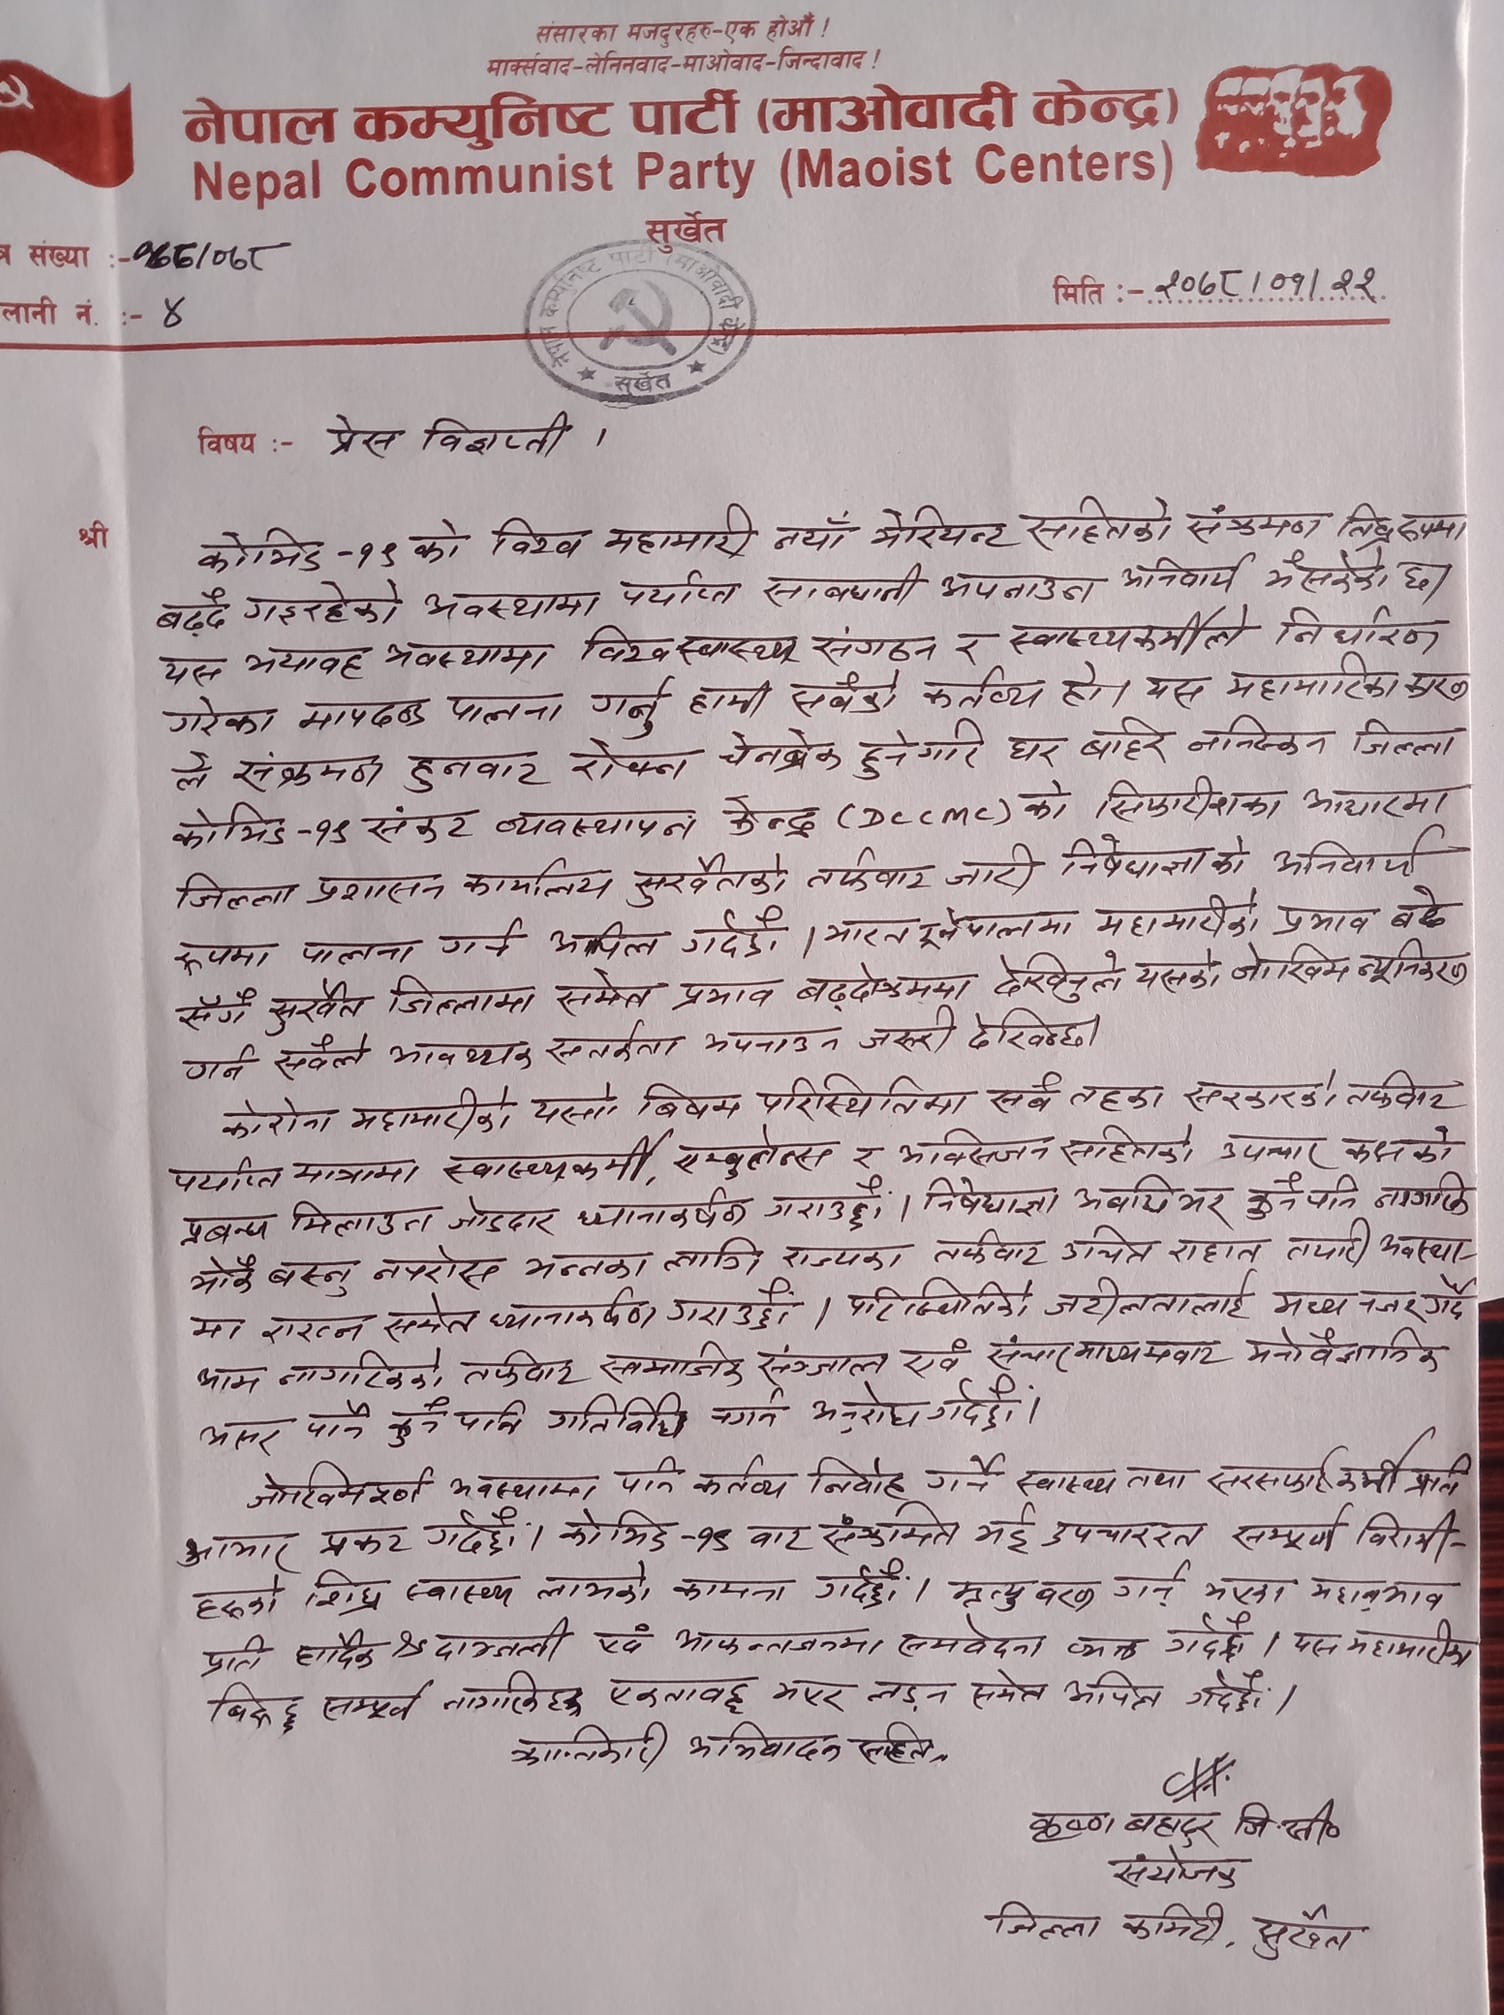 संसारका मजदुरहरु-एक होऔं !
मार्क्सवाद-लेनिनवाद-माओवाद-जिन्दावाद !
नेपाल कम्युनिष्ट पार्टी (माओवादी केन्द्र)
Nepal Communist Party (Maoist Centers)
सुर्खेत
त्र संख्या :-
लानी नं. :- ४
मिति :- २०७८/०१/२२
नेपाल कम्युनिष्ट पार्टी (माओवादी केन्द्र)
सुर्खेत
विषय :- प्रेस विज्ञप्ती ।
श्री
कोभिड-१९ को विश्व महामारी नयाँ भेरियन्ट सहितको संक्रमण तिब्र रूपमा
बढ्दै गइरहेको अवस्थामा पर्याप्त सावधानी अपनाउन अनिवार्य भैसकेको छ।
यस भयावह अवस्थामा विश्व स्वास्थ्य संगठन र स्वास्थ्यकर्मीले निर्धारण
गरेका मापदण्ड पालना गर्नु हामी सबैको कर्तव्य हो। यस महामारीका कारण
ले संक्रमण हुनबाट रोक्न चेनब्रेक हुनेगरि घर बाहिर ननिस्कन जिल्ला
कोभिड-१९ संकट व्यवस्थापन केन्द्र (DCCMC) को सिफारीशका आधारमा
जिल्ला प्रशासन कार्यालय सुर्खेतको तर्फबाट जारी निषेधाज्ञाको अनिवार्य
रूपमा पालना गर्न अपिल गर्दछौं । भारत हुँदै नेपालमा महामारीको प्रभाव बढे
सँगै सुर्खेत जिल्लामा समेत प्रभाव बढ्दोक्रममा देखिनुले यसको जोखिम न्यूनिकरण
गर्न सबैले आवश्यक सतर्कता अपनाउन जरूरी देखिन्छ।
कोरोना महामारीको यस्तो बिषम परिस्थितिमा सबै तहका सरकारको तर्फबाट
पर्याप्त मात्रामा स्वास्थ्यकर्मी, एम्बुलेन्स र अक्सिजन सहितको उपचार कक्षको
प्रबन्ध मिलाउन जोडदार ध्यानाकर्षण गराउछौं। निषेधाज्ञा अवधिभर कुनै पनि नागरिक
भोकै बस्नु नपरोस भन्नका लागि राज्यका तर्फबाट उचित राहात तयारी अवस्था-
मा राख्न समेत ध्यानाकर्षण गराउछौं । परिस्थितिको जटीलतालाई मध्य नजर गर्दै
आम नागरिकको तर्फबाट सामाजिक संञ्जाल एवं संचार माध्यमबाट मनोवैज्ञानिक
असर पार्ने कुनै पनि गतिविधि नगर्न अनुरोध गर्दछौं।
जोखिमपूर्ण अवस्थामा पनि कर्तव्य निर्वाह गर्ने स्वास्थ्य तथा सरसफाई कर्मी प्रति
आभार प्रकट गर्दछौं। कोभिड-१९ बाट संक्रमित भई उपचाररत सम्पूर्ण बिरामी-
हरूको शिघ्र स्वास्थ्य लाभको कामना गर्दछौं। मृत्यु वरण गर्नु भएका महानुभाव
प्रति हार्दिक श्रद्धाञ्जली एवं आफन्तजनमा समवेदना व्यक्त गर्दछौं । यस महामारीका
बिरूद्ध सम्पूर्ण नागरिकहरू एकतावद्ध भएर लड्न समेत अपिल गर्दछौं।
क्रान्तिकारी अभिवादन सहित,
कृष्ण बहादुर जि.सी.
संयोजक
जिल्ला कमिटी, सुर्खेत